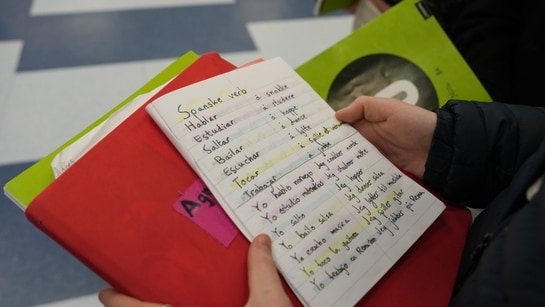 Spanske verb
Hablar å snakke
Estudiar å studere
Saltar å hoppe
Bailar å danse
Escuchar å lytte
Tocar å spille et
Trabajar å jobbe
Yo hablo noruego Jeg snakker norsk
Yo estudio Jeg studerer matte
Yo salto Jeg hopper
Yo bailo salsa Jeg danser salsa
Yo escucho musica Jeg lytter til musikk
Yo toco la guitarra Jeg spiller gitar
Yo trabajo en Jeg jobber på Rema